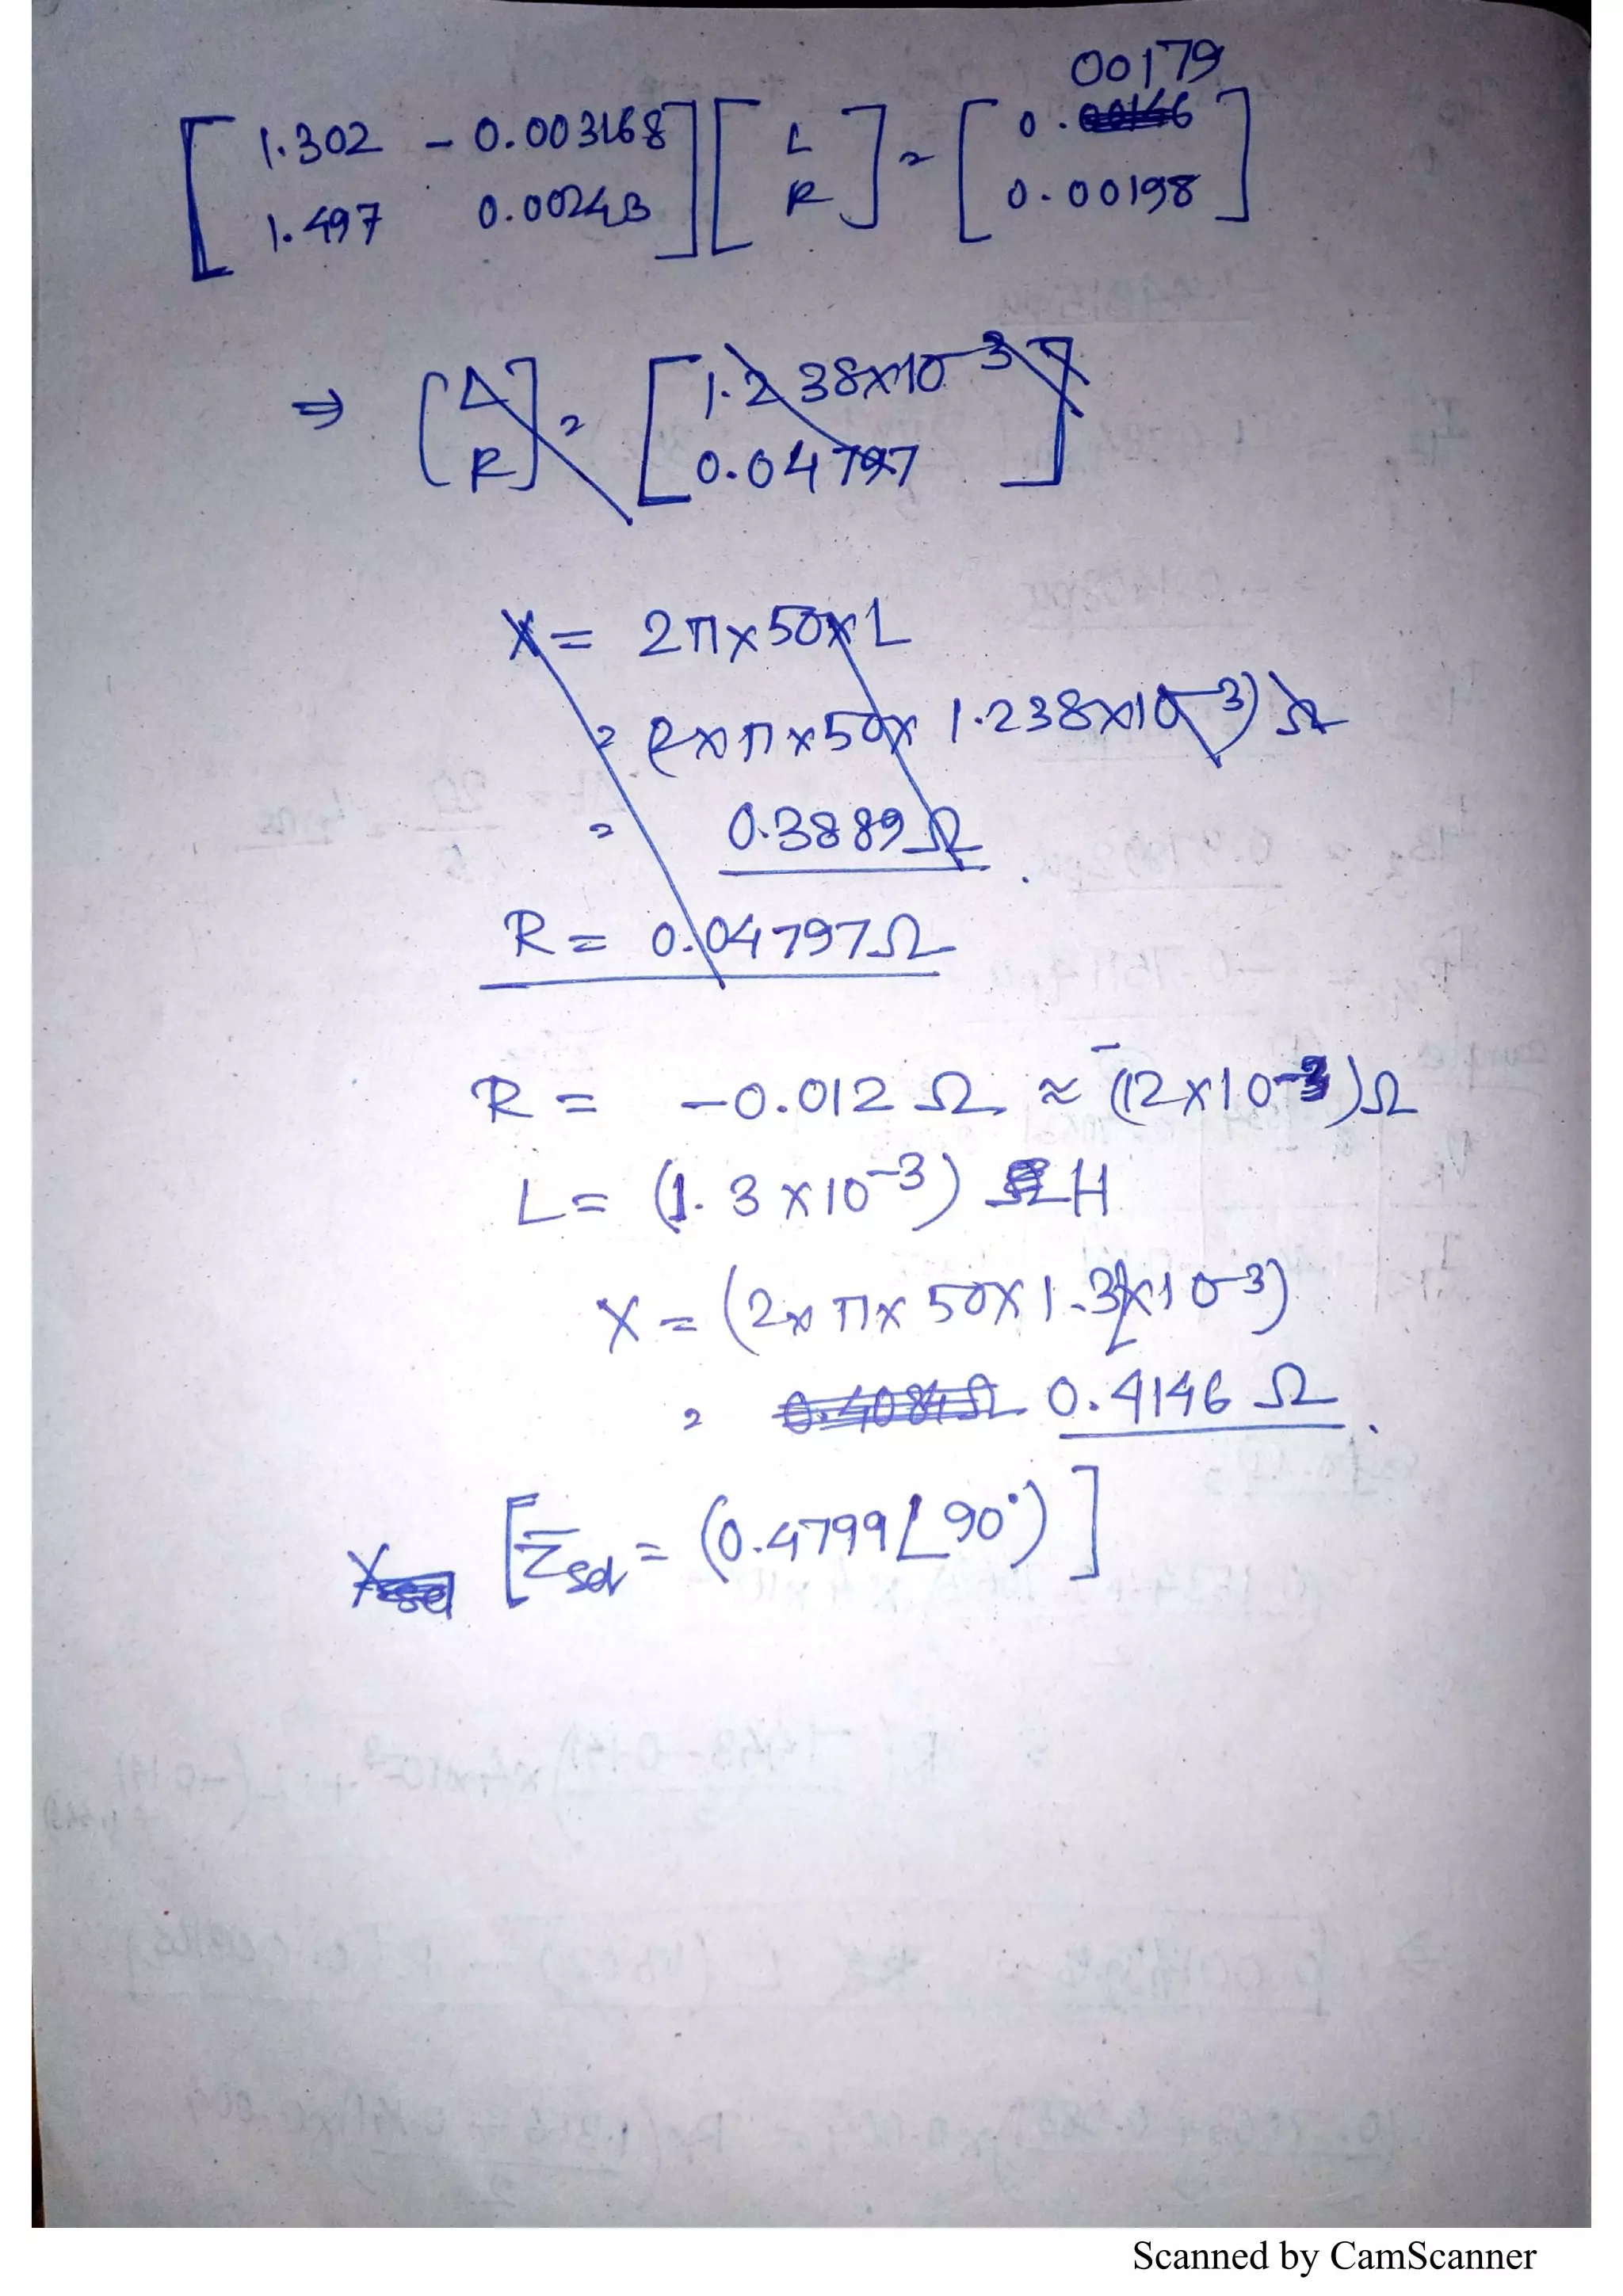 00179
[ 1.302 - 0.003168 ] [ L ] = [ 0.
1.497 0.00243 ] [ R ] = [ 0.00198 ]
⇒ [ L R ] = [ 1.238×10-3
0.04797 ]
X = 2π×50×L
= (2×π×50×1.238×10-3) Ω
= 0.3889Ω
R = 0.04797Ω
R = -0.012 Ω ≈ -(12×10-3)Ω
L = (1.3×10-3) H
X = (2×π×50×1.32×10-3)
= 0.4084Ω 0.4146 Ω
[ Z = (0.4799∠90°) ]
Scanned by CamScanner